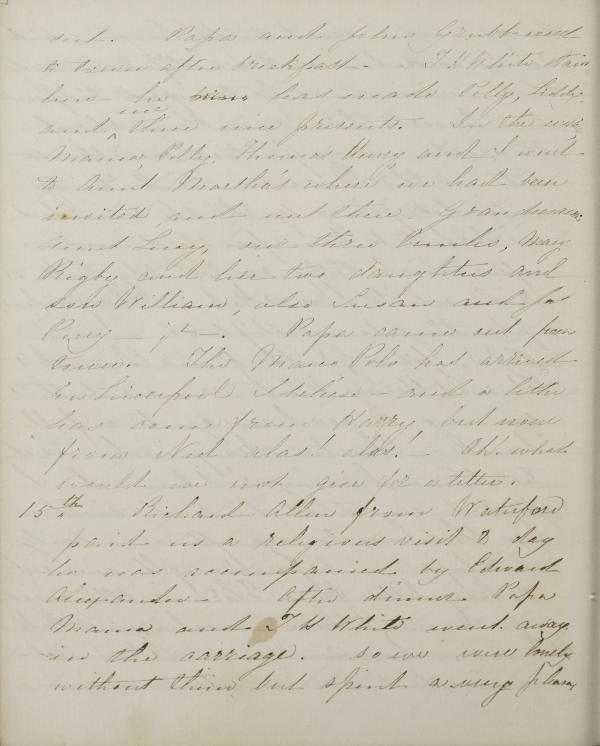 out. Papa and John Grubb went
to town after breakfast. T H White
here he has made Polly, Liddy
me
and ^ three nice presents. In the eve
Mama, Polly, Thomas Henry and I went
to Aunt Martha's where we had been
invited and met there Grandmama
Aunt Lucy, our three Uncles, Mary
Rigby and her two daughters and
son William, also Susan and
Papa came out from
town. The Marco Polo has arrived
in Liverpool I believe - and a letter
has come from Harry, but none
from Ned alas! alas! - Oh! what
would we not give for a letter.
15th Richard Allen from Waterford
paid us a religious visit 2 day
he was accompanied by Edward
Alexander - After dinner Papa
Mama and T H White went away
in the carriage. so we were lonely
without them but spent a very pleasa